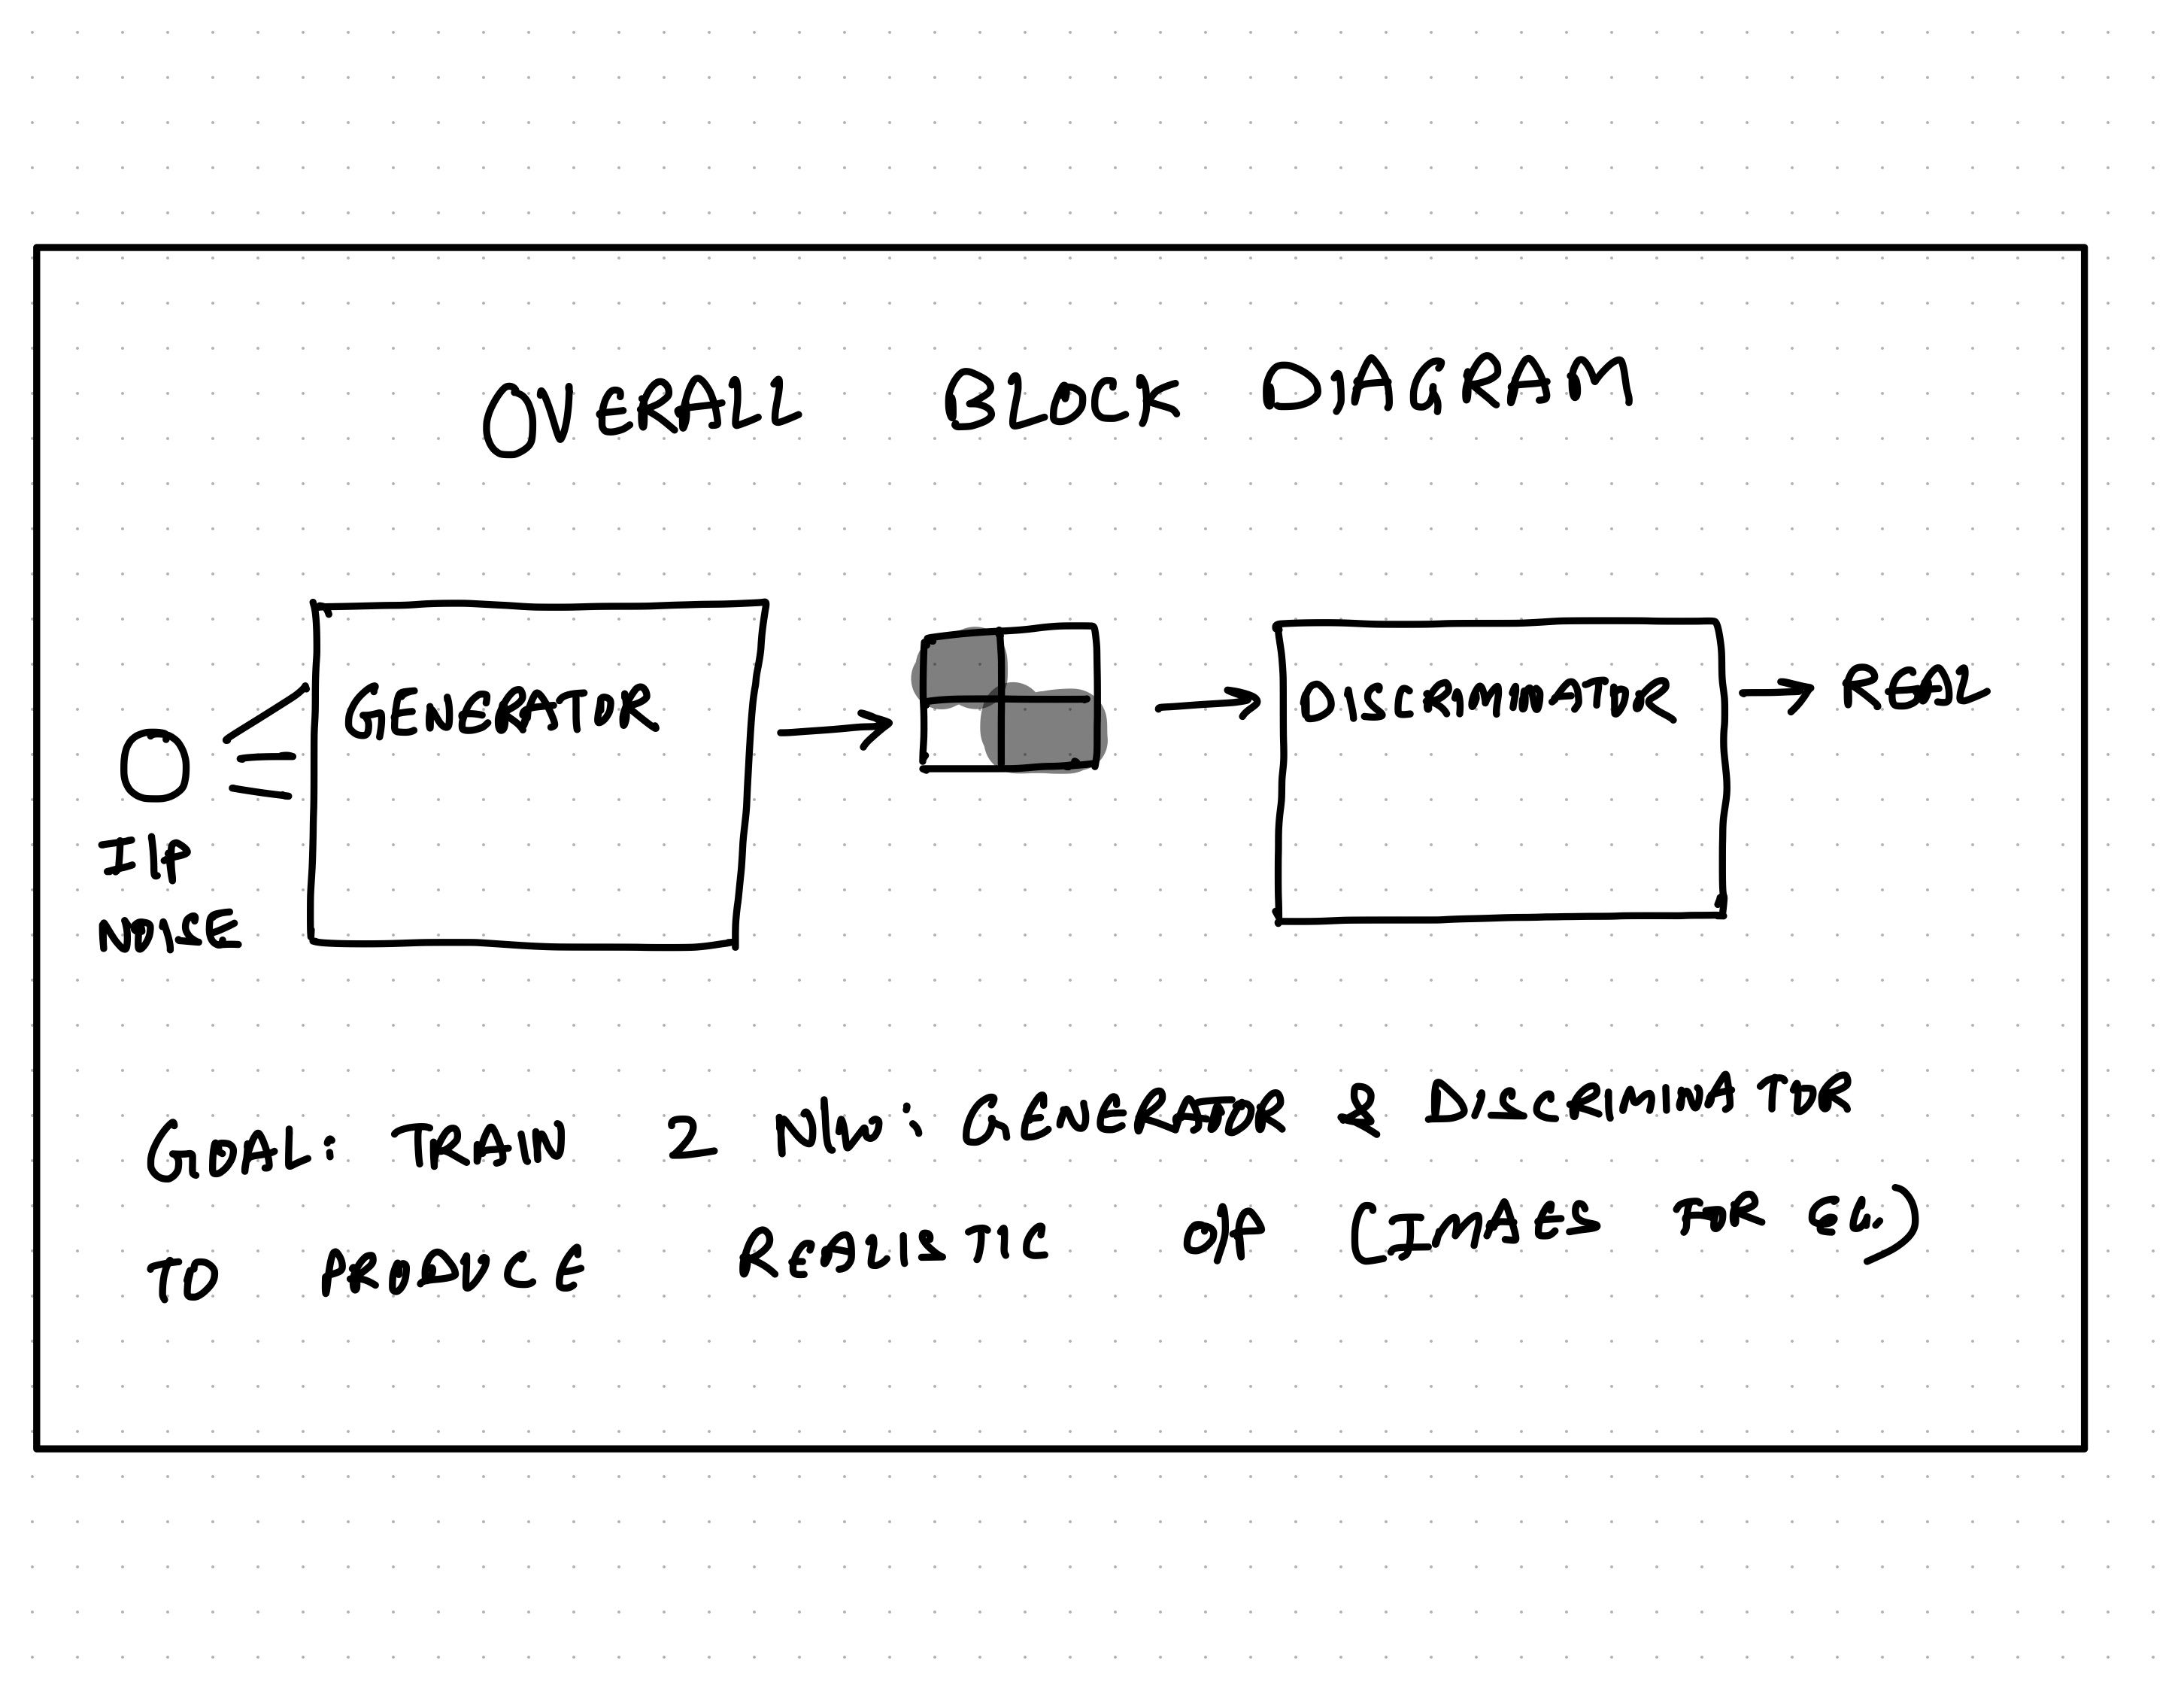 OVERALL BLOCK DIAGRAM
GENERATOR
DISCRMINATOR
REAL
I/P
NOISE
GOAL: TRAIN 2 NW: GENERATOR & DISCRIMINATOR
TO PRODUCE REALISTIC OP (IMAGES FOR EG.)